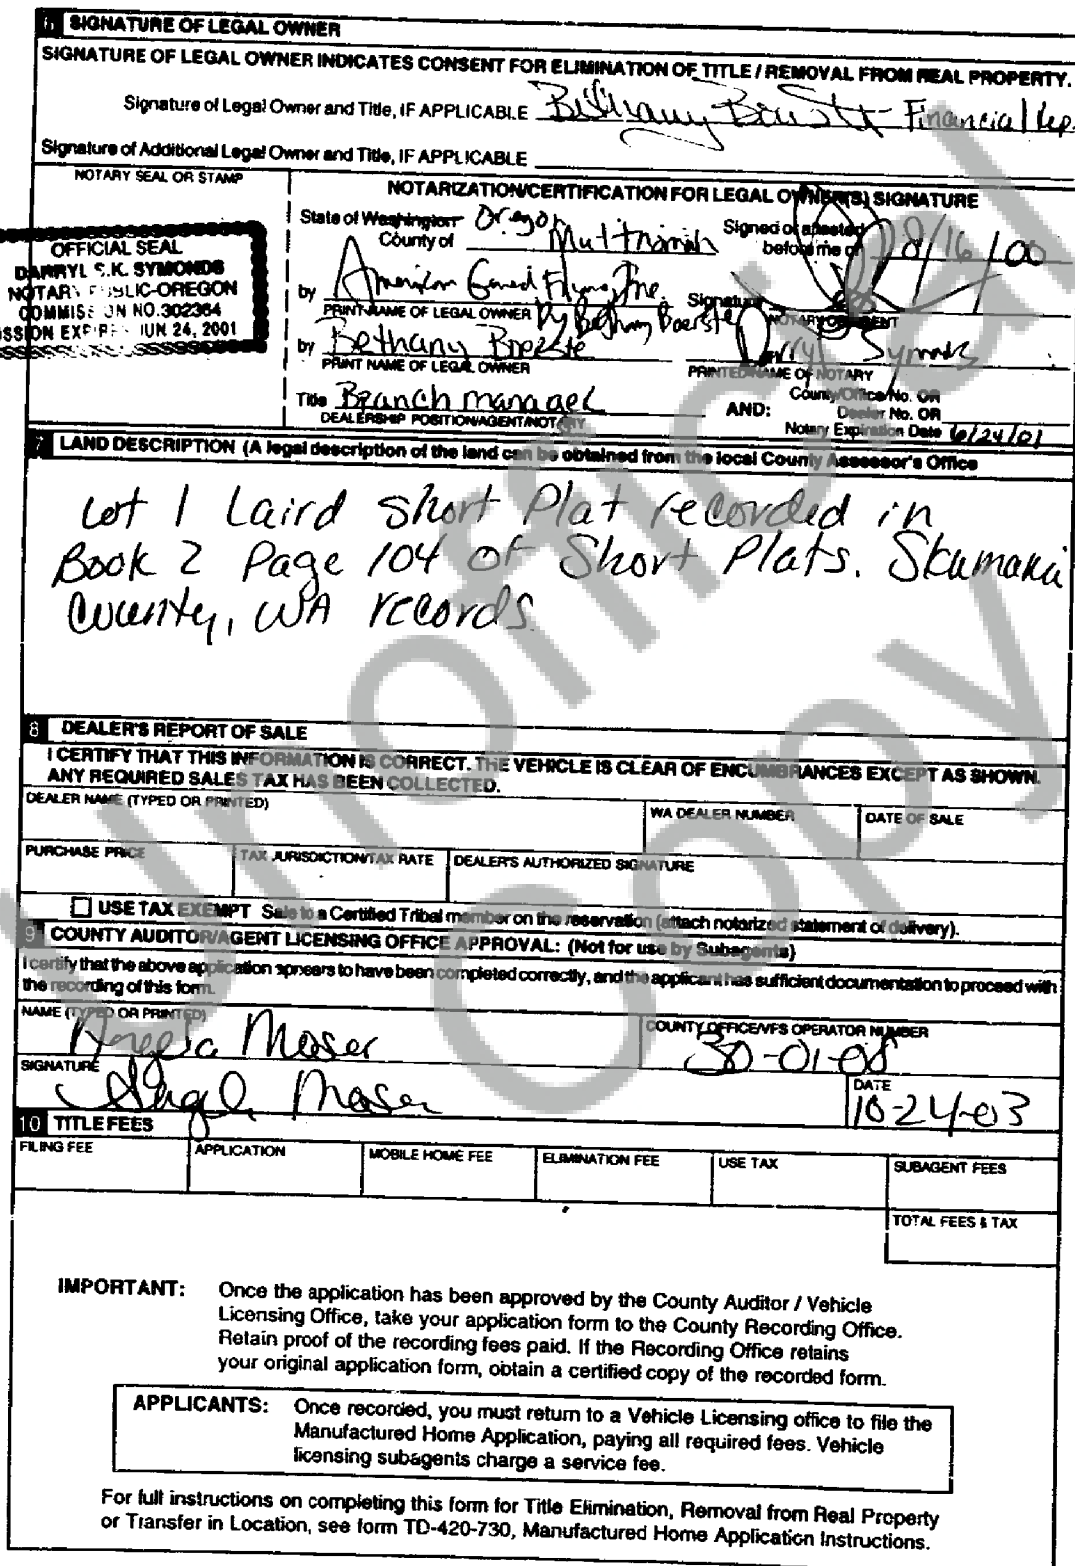 6 SIGNATURE OF LEGAL OWNER
SIGNATURE OF LEGAL OWNER INDICATES CONSENT FOR ELIMINATION OF TITLE / REMOVAL FROM REAL PROPERTY.
Signature of Legal Owner and Title, IF APPLICABLE Bethany Financial Rep.
Signature of Additional Legal Owner and Title, IF APPLICABLE
NOTARY SEAL OR STAMP
NOTARIZATION/CERTIFICATION FOR LEGAL OWNER(S) SIGNATURE
OFFICIAL SEAL
DARRYL S.K. SYMONDS
NOTARY PUBLIC-OREGON
COMMISSION NO.302364
SSION EXPIRES JUN 24, 2001
State of Washington Oregon
County of Multnomah
Signed or attested before me on 8/16/00
by American General Finance Inc.
PRINT NAME OF LEGAL OWNER by Bethany Boerste
Signature
NOTARY OR AGENT
by Bethany Boerste
PRINT NAME OF LEGAL OWNER
Darryl Symonds
PRINTED NAME OF NOTARY
Title Branch manager
DEALERSHIP POSITION/AGENT/NOTARY
AND:
County/Office/No. OR
Dealer No. OR
Notary Expiration Date 6/24/01
7 LAND DESCRIPTION (A legal description of the land can be obtained from the local County Assessor's Office
Lot 1 Laird Short Plat recorded in
Book 2 Page 104 of Short Plats. Skamania
County, WA records.
8 DEALER'S REPORT OF SALE
I CERTIFY THAT THIS INFORMATION IS CORRECT. THE VEHICLE IS CLEAR OF ENCUMBRANCES EXCEPT AS SHOWN.
ANY REQUIRED SALES TAX HAS BEEN COLLECTED.
DEALER NAME (TYPED OR PRINTED)
WA DEALER NUMBER
DATE OF SALE
PURCHASE PRICE
TAX JURISDICTION/TAX RATE
DEALER'S AUTHORIZED SIGNATURE
USE TAX EXEMPT Sale to a Certified Tribal member on the reservation (attach notarized statement of delivery).
9 COUNTY AUDITOR/AGENT LICENSING OFFICE APPROVAL: (Not for use by Subagents)
I certify that the above application appears to have been completed correctly, and the applicant has sufficient documentation to proceed with
the recording of this form.
NAME (TYPED OR PRINTED)
Angela Moser
COUNTY OFFICE/VFS OPERATOR NUMBER
30-01-08
SIGNATURE
Angela Moser
DATE
10-24-03
10 TITLE FEES
FILING FEE
APPLICATION
MOBILE HOME FEE
ELIMINATION FEE
USE TAX
SUBAGENT FEES
TOTAL FEES & TAX
IMPORTANT: Once the application has been approved by the County Auditor / Vehicle
Licensing Office, take your application form to the County Recording Office.
Retain proof of the recording fees paid. If the Recording Office retains
your original application form, obtain a certified copy of the recorded form.
APPLICANTS: Once recorded, you must return to a Vehicle Licensing office to file the
Manufactured Home Application, paying all required fees. Vehicle
licensing subagents charge a service fee.
For full instructions on completing this form for Title Elimination, Removal from Real Property
or Transfer in Location, see form TD-420-730, Manufactured Home Application Instructions.
Unofficial
Copy